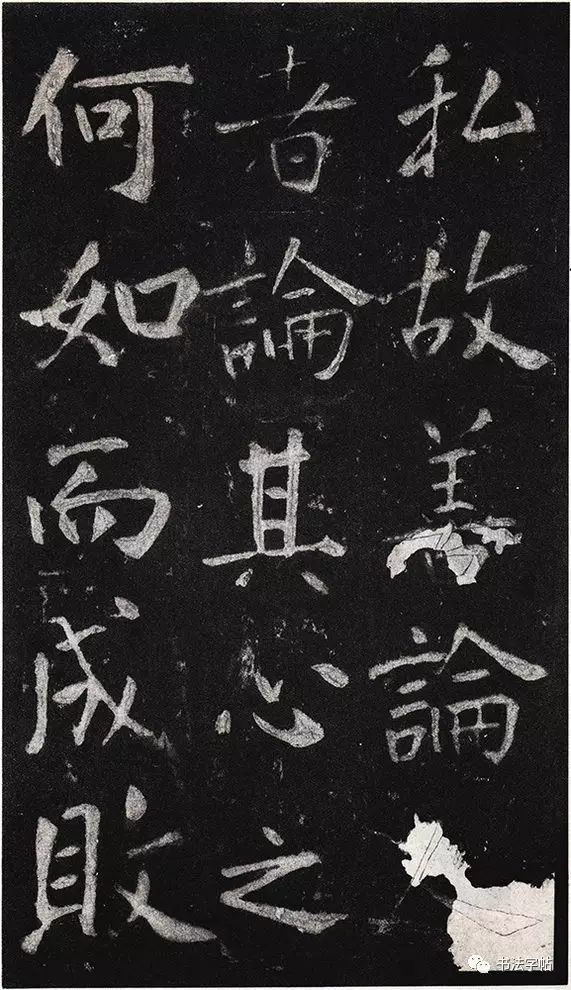 私故善論
者論其心之
何如而成敗
书法字帖